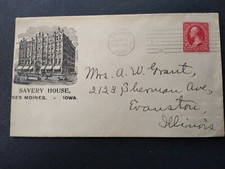 SAVERY HOUSE,
DES MOINES, - IOWA.
Mrs. A. W. Grant,
2123 Sherman Ave,
Evanston,
Illinois